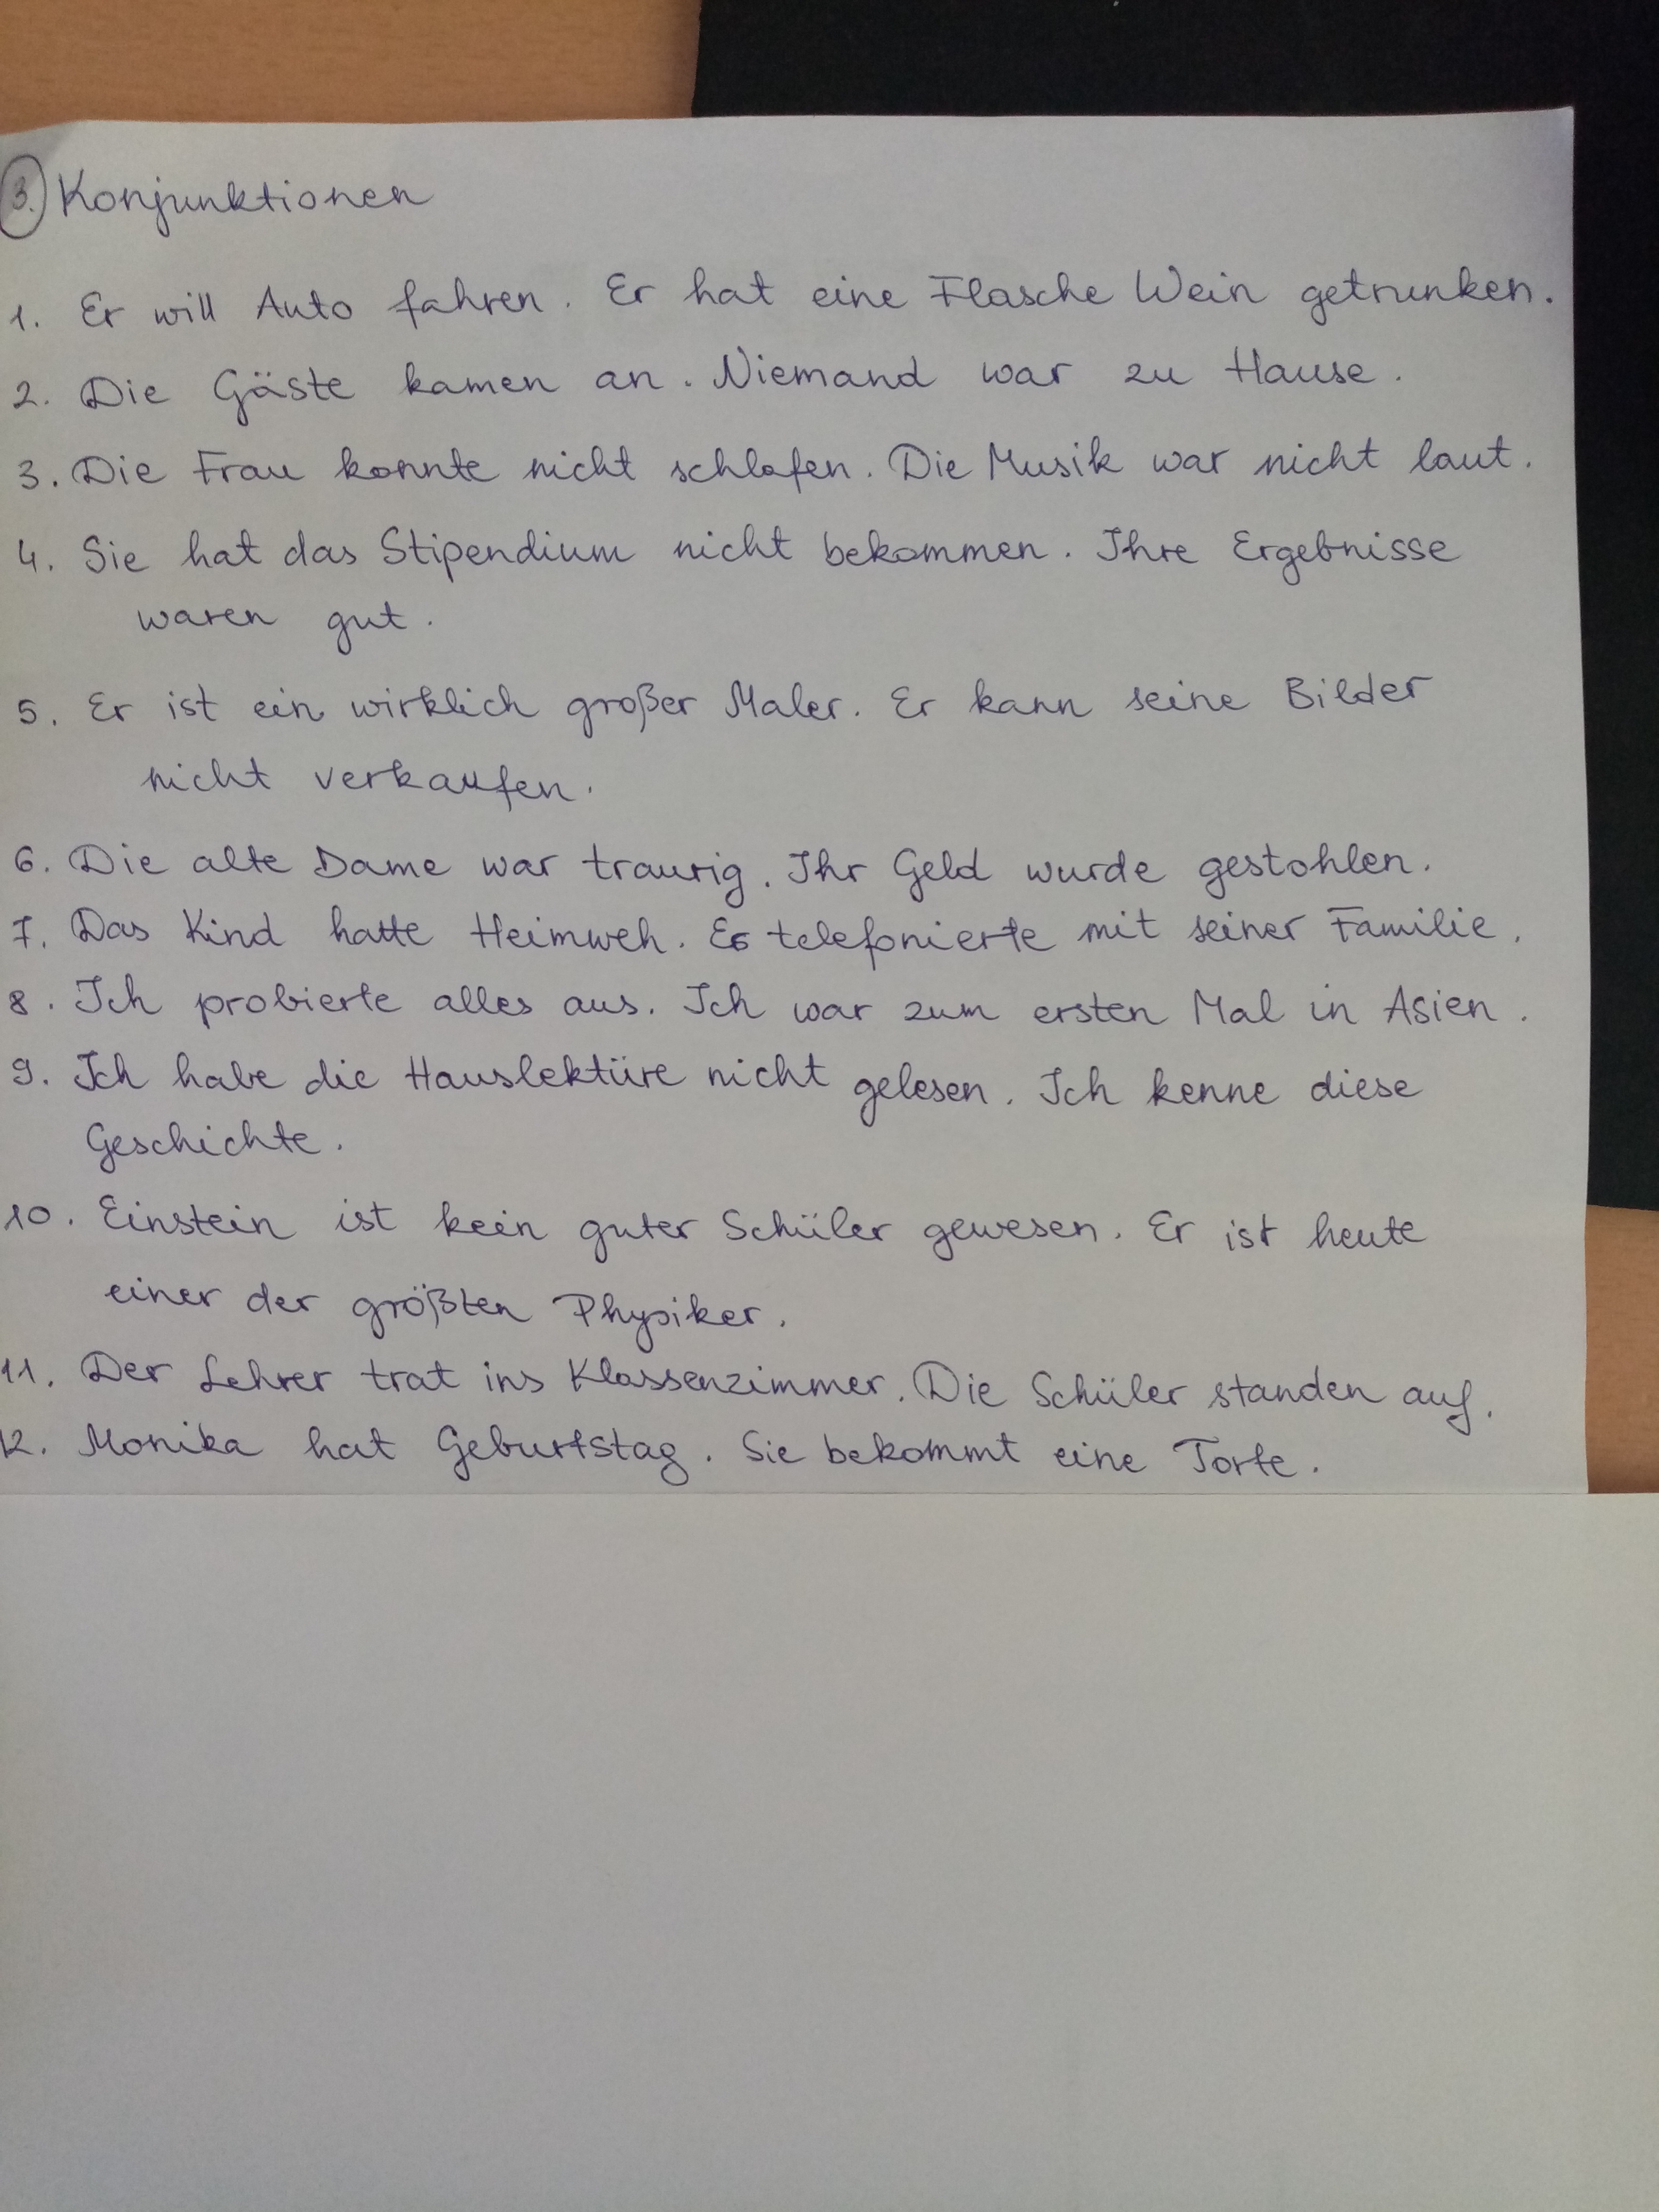 3. Konjunktionen
1. Er will Auto fahren. Er hat eine Flasche Wein getrunken.
2. Die Gäste kamen an. Niemand war zu Hause.
3. Die Frau konnte nicht schlafen. Die Musik war nicht laut.
4. Sie hat das Stipendium nicht bekommen. Ihre Ergebnisse
waren gut.
5. Er ist ein wirklich großer Maler. Er kann seine Bilder
nicht verkaufen.
6. Die alte Dame war traurig. Ihr Geld wurde gestohlen.
7. Das Kind hatte Heimweh. Es telefonierte mit seiner Familie.
8. Ich probierte alles aus. Ich war zum ersten Mal in Asien.
9. Ich habe die Hauslektüre nicht gelesen. Ich kenne diese
Geschichte.
10. Einstein ist kein guter Schüler gewesen. Er ist heute
einer der größten Physiker.
11. Der Lehrer trat ins Klassenzimmer. Die Schüler standen auf.
12. Monika hat Geburtstag. Sie bekommt eine Torte.